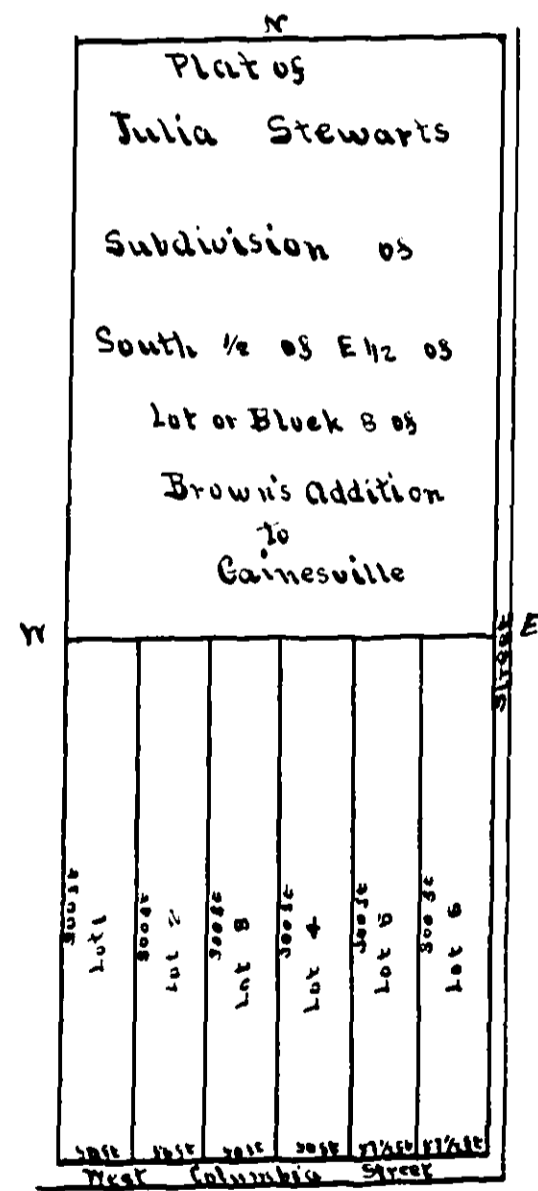 N
Plat of
Julia Stewarts
Subdivision of
South 1/2 of E 1/2 of
Lot or Block 8 of
Brown's addition
to
Gainesville
W E
Street
300 ft
Lot 1
300 ft
Lot 2
300 ft
Lot 3
300 ft
Lot 4
300 ft
Lot 5
300 ft
Lot 6
50 ft 50 ft 50 ft
West Columbia Street